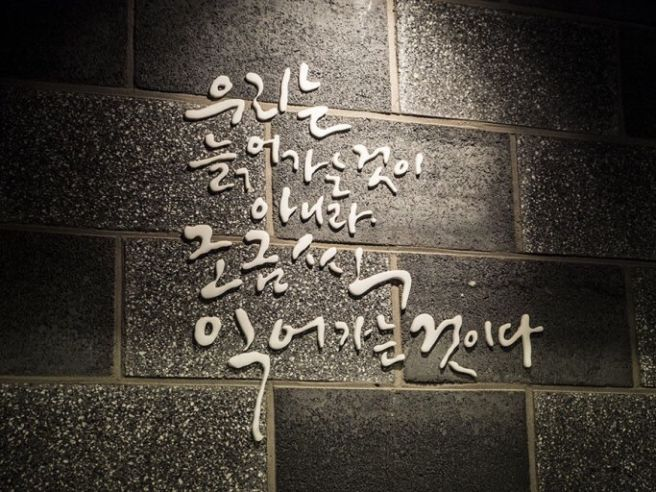 우리는
늙어가는 것이
아니라
조금씩
익어가는 것이다